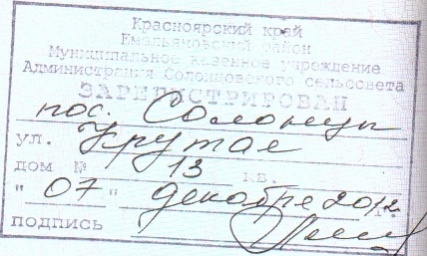 Красноярский край
Емельяновский район
Муниципальное казенное учреждение
Администрация Солонцовского сельсовета
ЗАРЕГИСТРИРОВАН
пос. Солонцы
ул. Крутая
дом № 13 кв.
"07" декабря 2012 г.
подпись